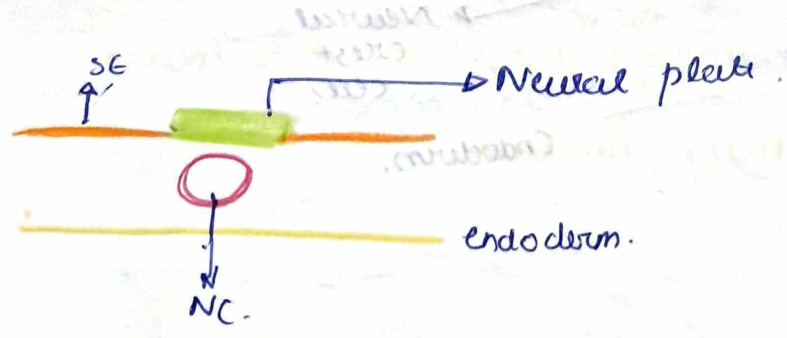 SE
Neural plate.
endoderm.
NC.